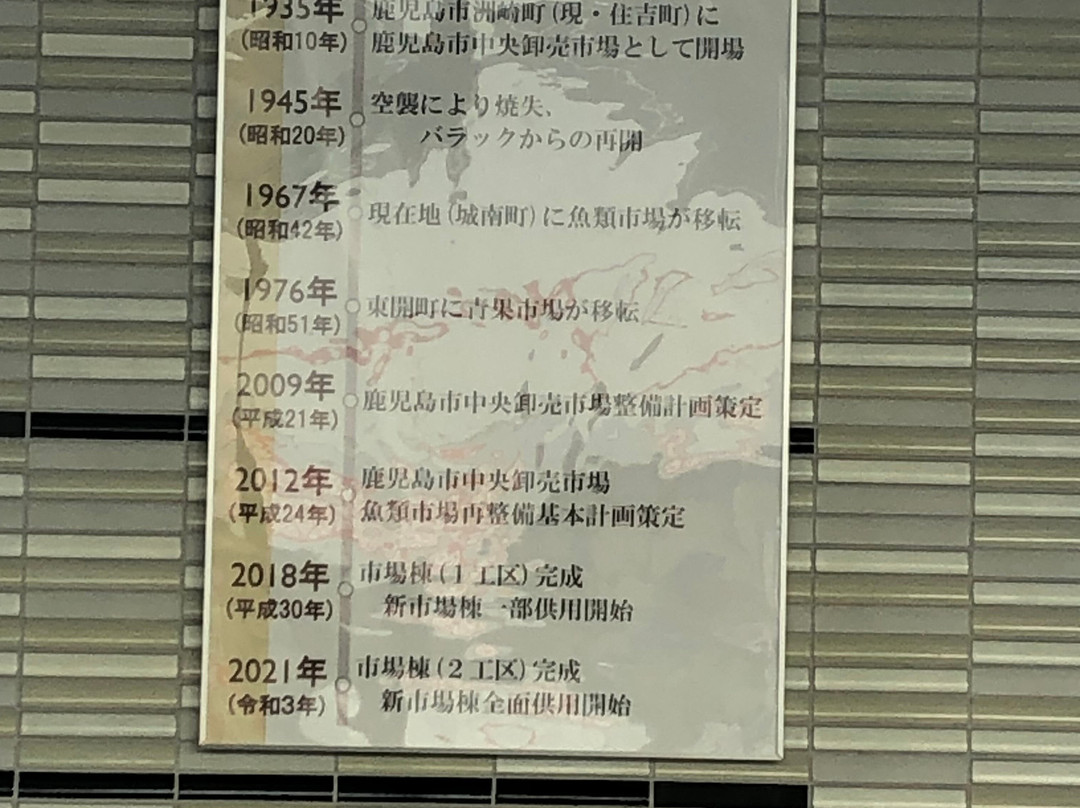 1935年 鹿児島市洲崎町(現・住吉町)に
(昭和10年) 鹿児島市中央卸売市場として開場
1945年 空襲により焼失、
(昭和20年) バラックからの再開
1967年
(昭和42年) 現在地(城南町)に魚類市場が移転
1976年
(昭和51年) 東開町に青果市場が移転
2009年
(平成21年) 鹿児島市中央卸売市場整備計画策定
2012年 鹿児島市中央卸売市場
(平成24年) 魚類市場再整備基本計画策定
2018年 市場棟(1工区)完成
(平成30年) 新市場棟一部供用開始
2021年 市場棟(2工区)完成
(令和3年) 新市場棟全面供用開始